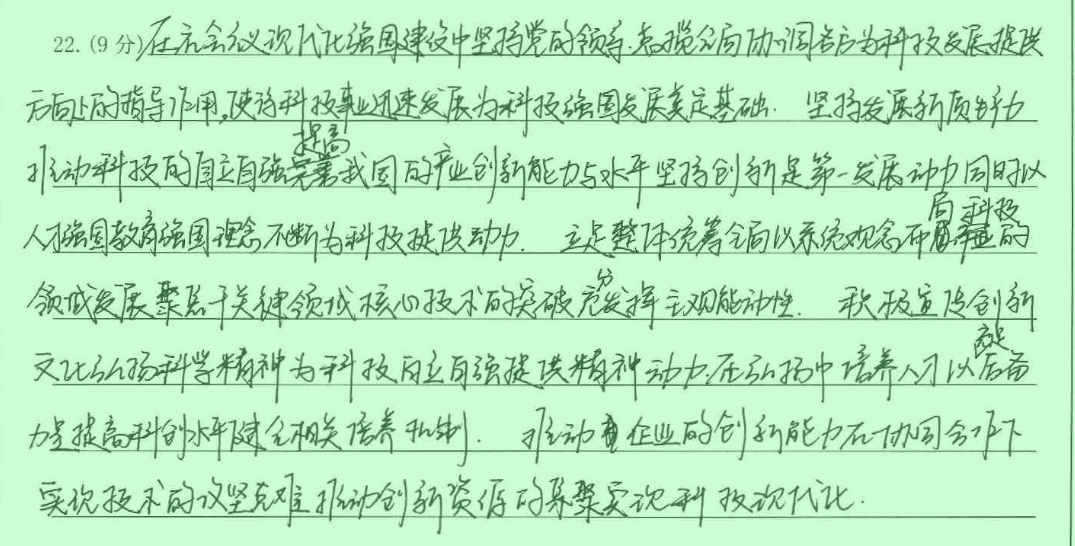 22.(9分)在社会主义现代化强国建设中坚持党的领导.总揽全局协调各方为科技发展提供
方向上的指导作用,使得科技事业迅速发展为科技强国发展奠定基础. 坚持发展新质生产力
推动科技的自立自强提高我国的产业创新能力与水平坚持创新是第一发展动力同时以
人才强国教育强国理念不断为科技提供动力. 立足整体统筹全局以系统观念布局科技的
领域发展聚焦于关键领域核心技术的突破充分发挥主观能动性. 积极宣传创新
文化弘扬科学精神为科技自立自强提供精神动力.在弘扬中培养人才以后备
力量提高科创水平健全相关培养机制. 推动企业的创新能力在协同合作下
实现技术的攻坚克难推动创新资源的集聚实现科技现代化.